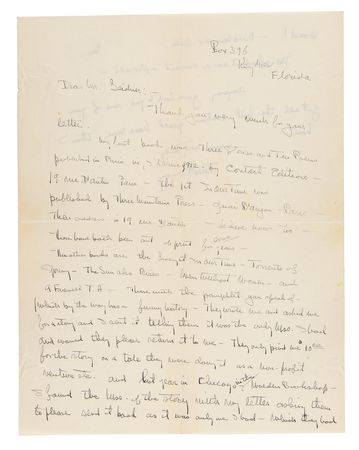 Box 396
Key West
Florida
Dear Mr.
Thank you very much for your
letter.
My first book was Three Stories and Ten Poems
published in Paris in by Contact Editions —
19 rue Paris — The 1st In Our Time was
published by Three Mountains Press — Quai — Paris —
Their address is 19 rue — believe now too —
These have both been out of print for years —
The other books are the In Our Time — Torrents of
Spring — The Sun also Rises — Men Without Women — and
A Farewell T.A — the pamphlet you speak of
(which by the way has a funny history — They wrote me and asked me
for a story and I sent it telling them it was the only Mss. I had
and would they please return it to me — They only paid me
for the story on a tale they were doing it as a non-profit
venture etc. and last year in Chicago Bookshop —
I found the Mss. of the story with my letter asking them
to please send it back as it was only one I had — which they had